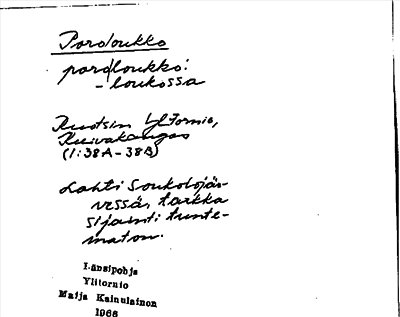 Pordloukko
pordloukko:
- loukossa
Ruotsin Ylitornio,
Kuivakangas
(1:38A-38B)
Lahti Soukolojär-
vessä, tarkka
sijainti tunte-
maton.
Länsipohja
Ylitornio
Maija Kainulainen
1966